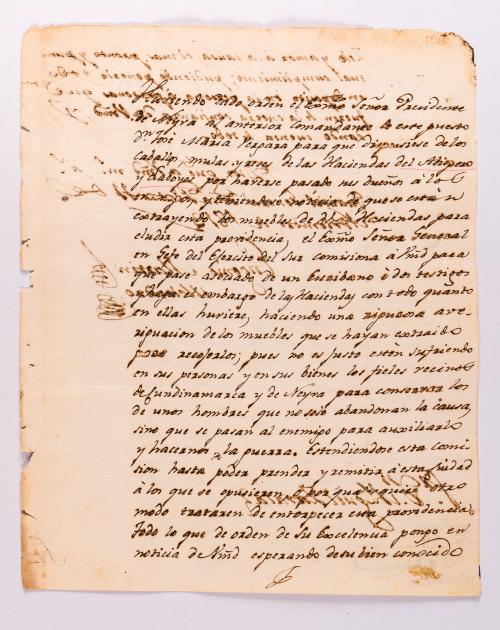 Habiendo dado orden el Exmo Señor Presidente
de Neyva al anterior Comandante de este puesto
Dn José Maria Vergara para que dispusiese de los
Caballos, mulas y reses de las Haciendas del
y Laboyos por haverse pasado sus dueños á los
y teniendose noticias de que se están
extrayendo los muebles de dhas Haciendas para
eludir esta providencia, el Exmo Señor General
en Jefe del Exercito del Sur comisiona á Vmd para
que pase asociado de un Escribano ó dos testigos
y haga el embargo de las Haciendas con todo quanto
en ellas huviere, haciendo una riguosa ave-
riguacion de los muebles que se hayan extraido
para recojerlos; pues no es justo estén sufriendo
en sus personas y en sus bienes los fieles vecinos
de Cundinamarca y de Neyva para conservar los
de unos hombres que no solo abandonan la causa,
sino que se pasan al enemigo para auxiliarlo
y hacernos la guerra. Estendiendose esta comi-
sion hasta poder prender y remitir á esta Ciudad
á los que se opusieren ó por qualequiera otro
modo trataren de entorpecer esta providencia
Todo lo que de orden de Su Excelencia pongo en
noticia de Vmd esperando de su bien conocido